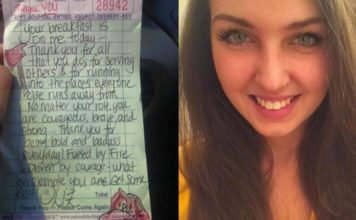 THANK YOU
28942
APPET-SOUP/SAL-ENTREE-VEG/POT-DESSERT-BEV
Your breakfast is
on me today -
Thank you for all
that you do; for serving
others & for running
into the places everyone
else runs away from.
No matter your role, you
are courageous, brave, and
strong. Thank you for
being bold and badass
everyday! Fueled by Fire
& Driven by courage - what
an example you are. Get some
REST
Total
Thank You - Please Come Again